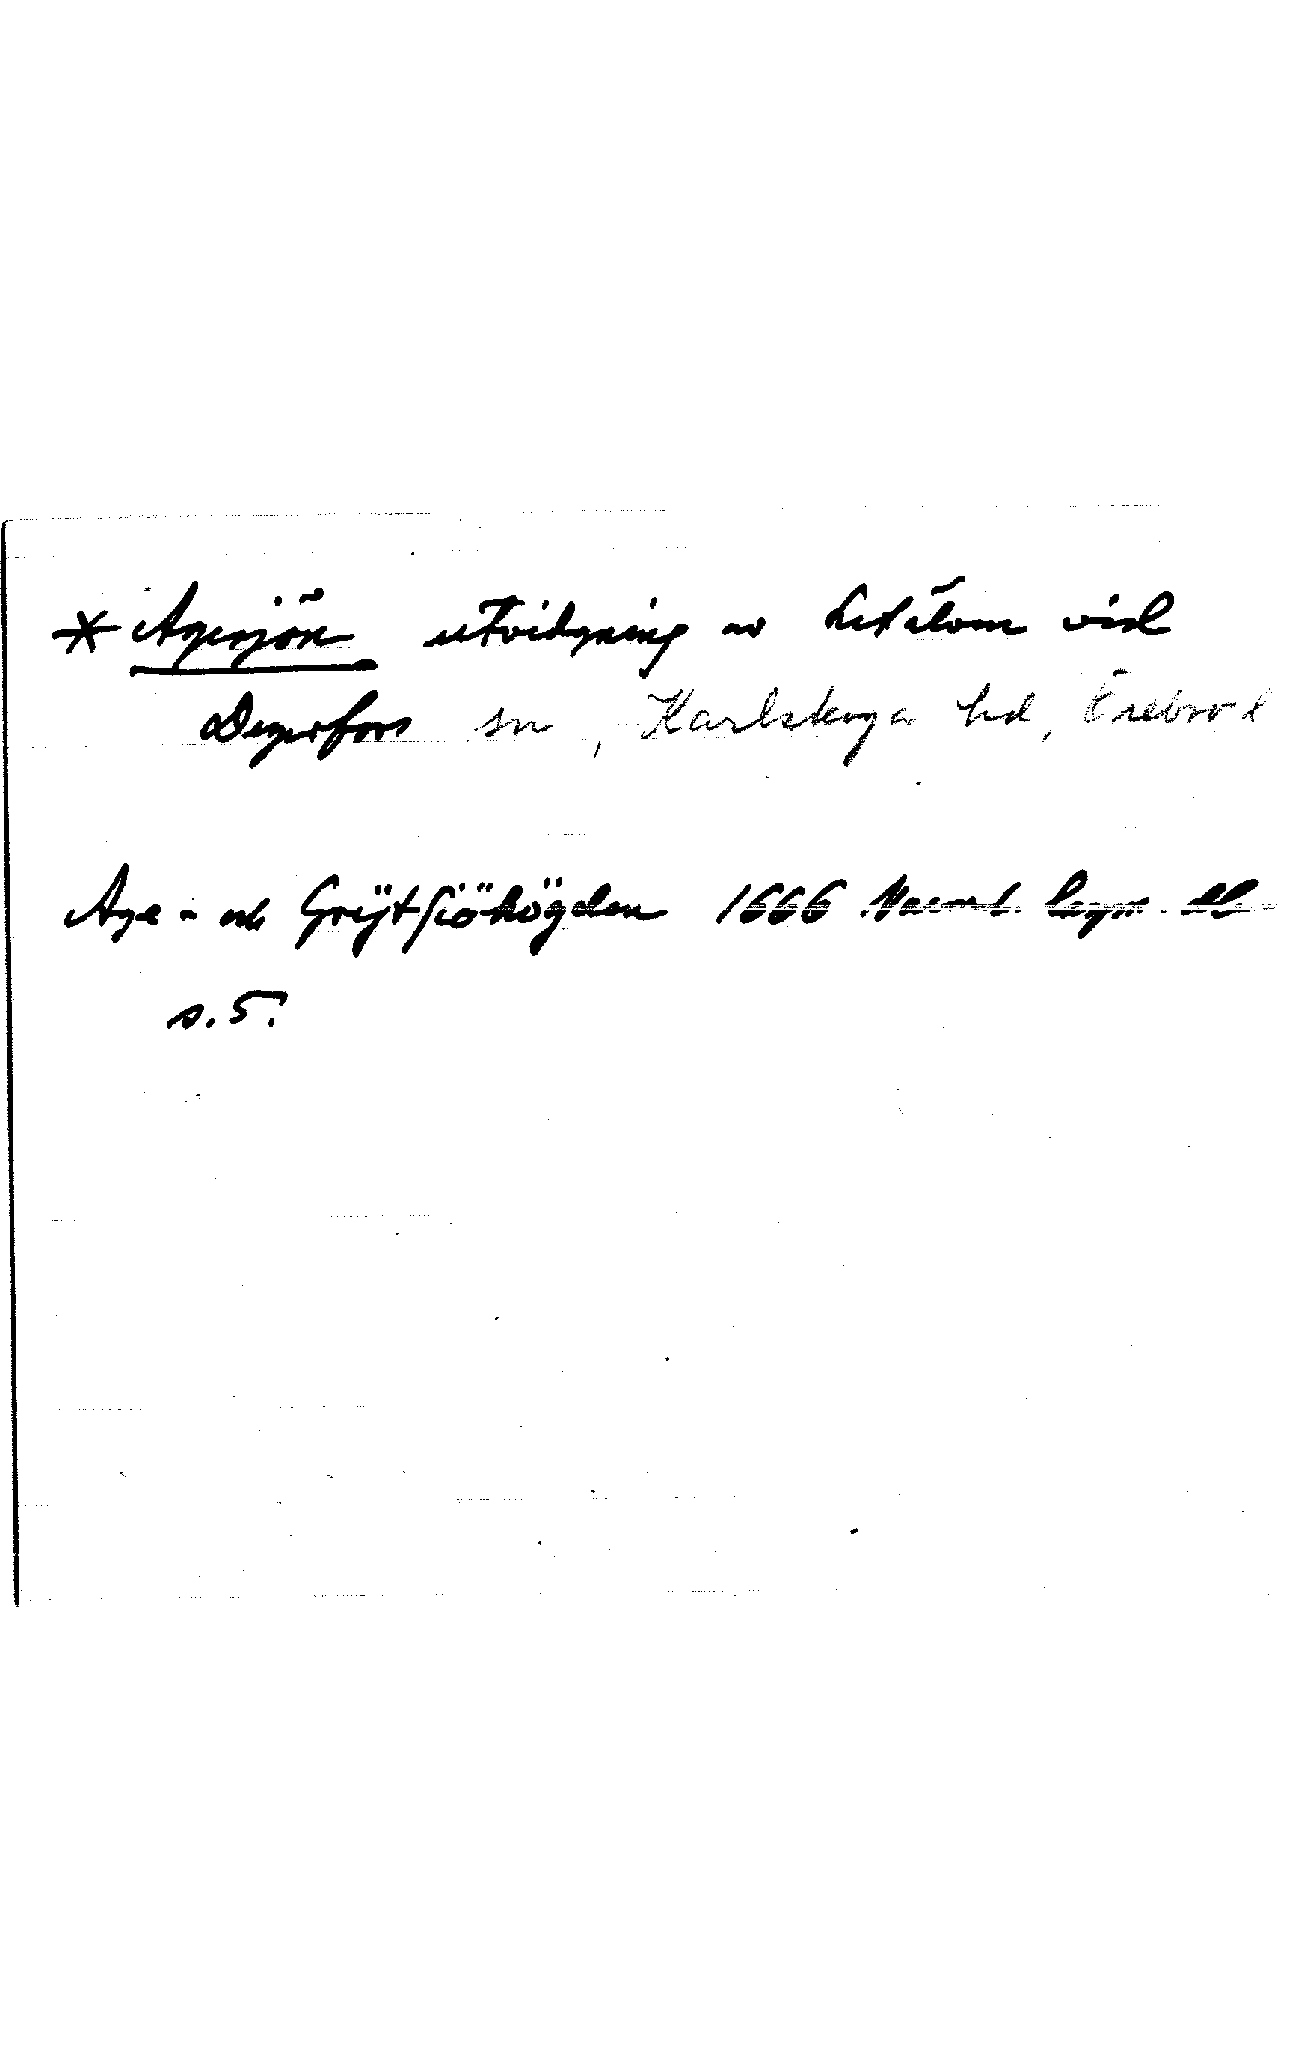 * Agesjön utvidgning av Letälven vid
Degerfors sn, Karlskoga hd, Örebro l
Age- och Grÿtsiöhögden 1666
s. 5.